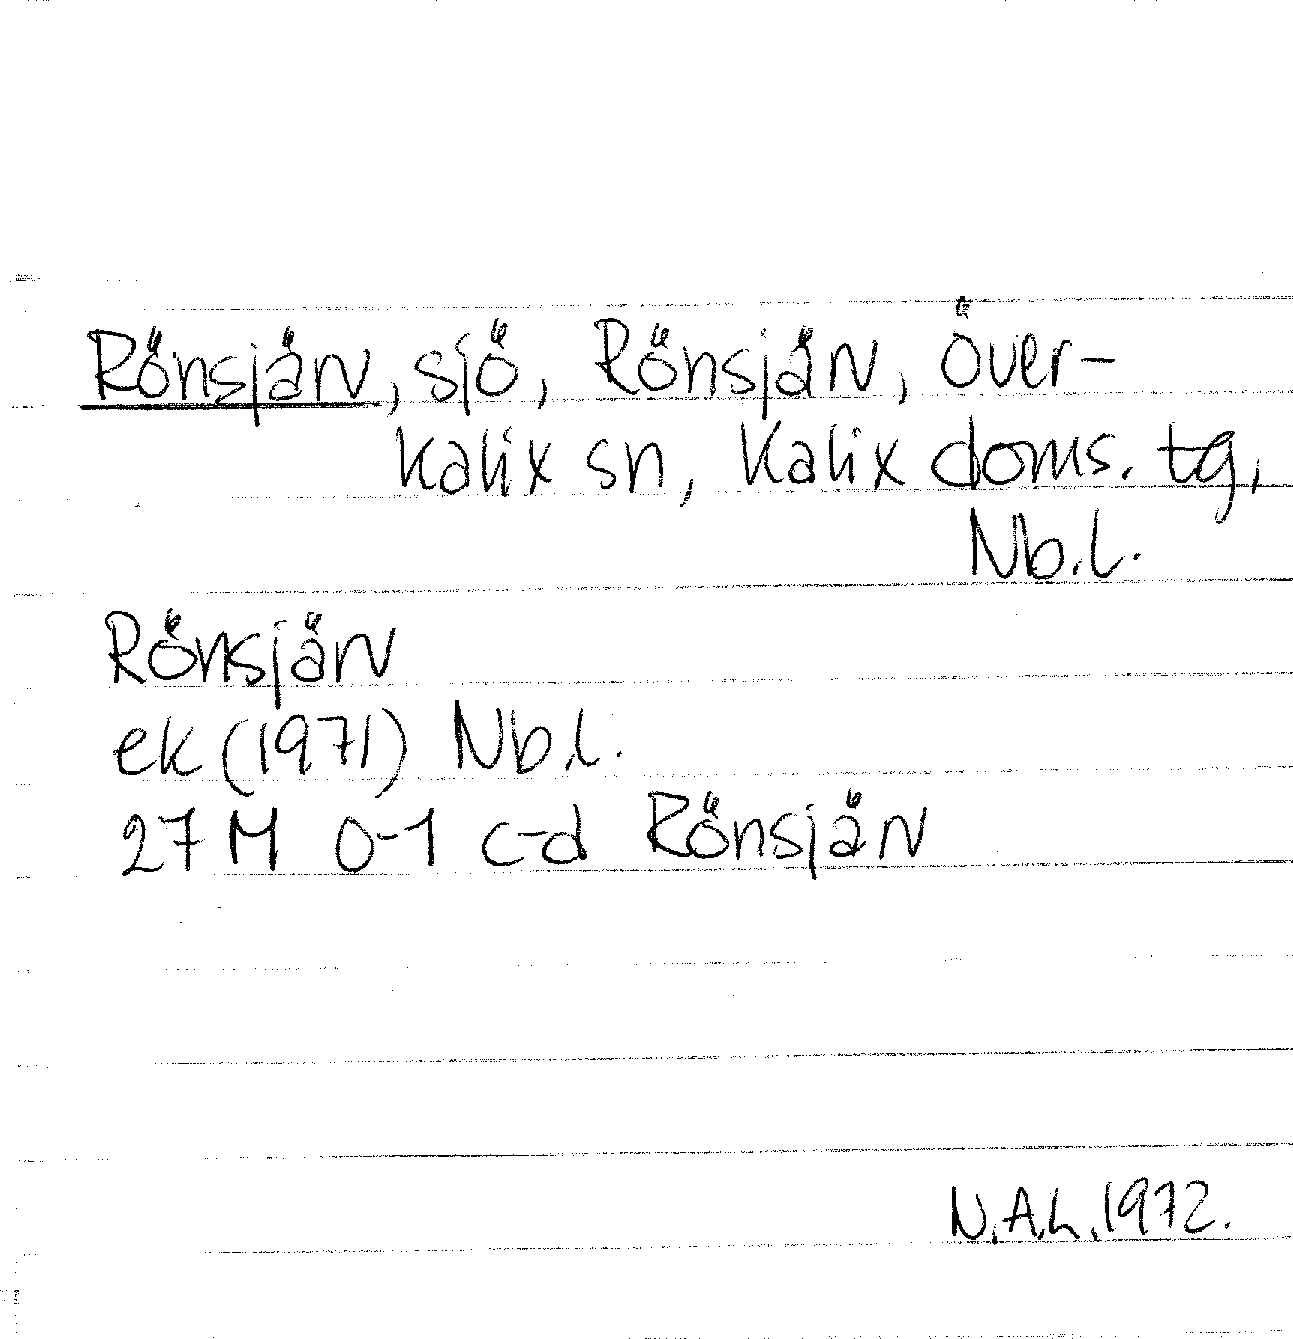 Rönsjärv, sjö, Rönsjärv, Över-
kalix sn, Kalix doms. tg,
Nb.l.
Rönsjärv
ek (1971) Nb.l.
27 M 0-1 c-d Rönsjärv
N.A.h.1972.